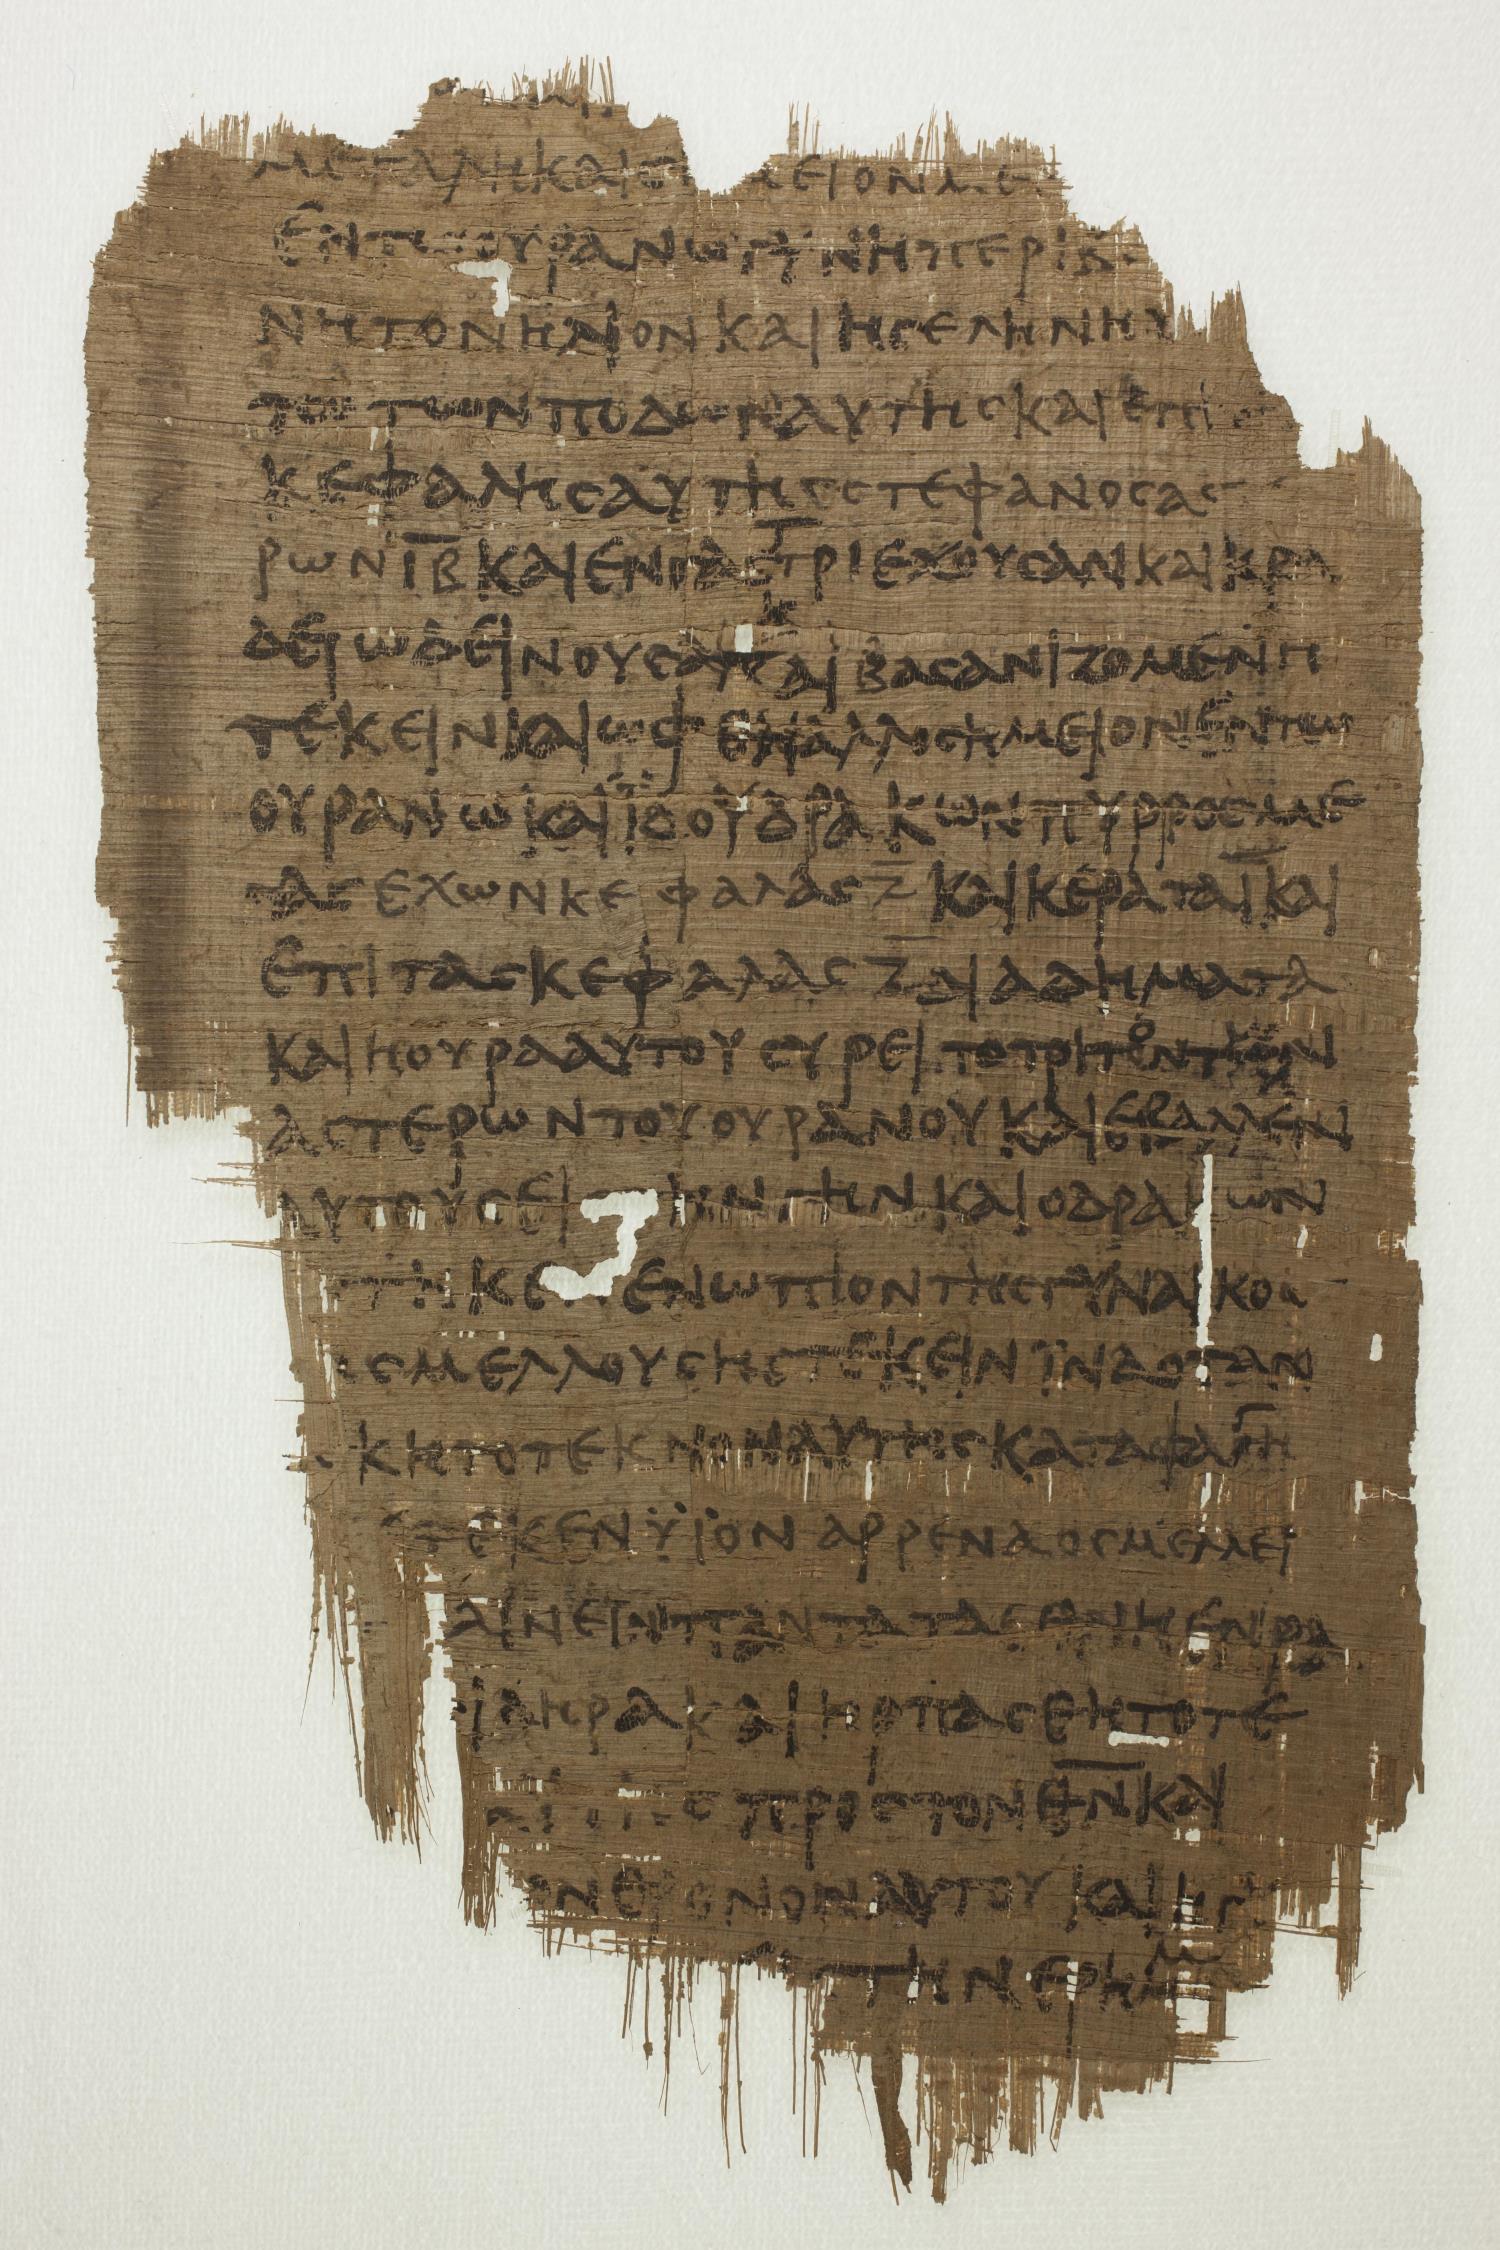 μεγαλη και σ ειον με
εν τω ουρανω γυνη περιβ
νη τον ηλιον και η σεληνη υ
τω των ποδων αυτης και επι
κεφαλης αυτης στεφανος ασ
ρων ιβ και εν γαστρι εχουσαν και κρα
δει ωδεινουσα και βασανιζομενη
τεκειν και ωφθη αλλο σημειον εν τω
ουρανω και ϊδου δρακων πυρρος με
γας εχων κεφαλας ζ και κερατα ι και
επι τας κεφαλας ζ διαδηματα
και η ουρα αυτου συρει το τριτον των
αστερων του ουρανου και εβαλεν
αυτους ει την γην και ο δρακων
στηκεν ενωπιον της γυναικος
ς μελλουσης τεκειν ϊνα οταν
κη το τεκνον αυτης καταφαγη
ετεκεν ϋϊον αρρενα ος μελλει
αινειν παντα τα εθνη εν ρα
ιδηρα και ηρπασθη το τε
ης προς τον θν και
ον θρονον αυτου και η γ
την ερημ